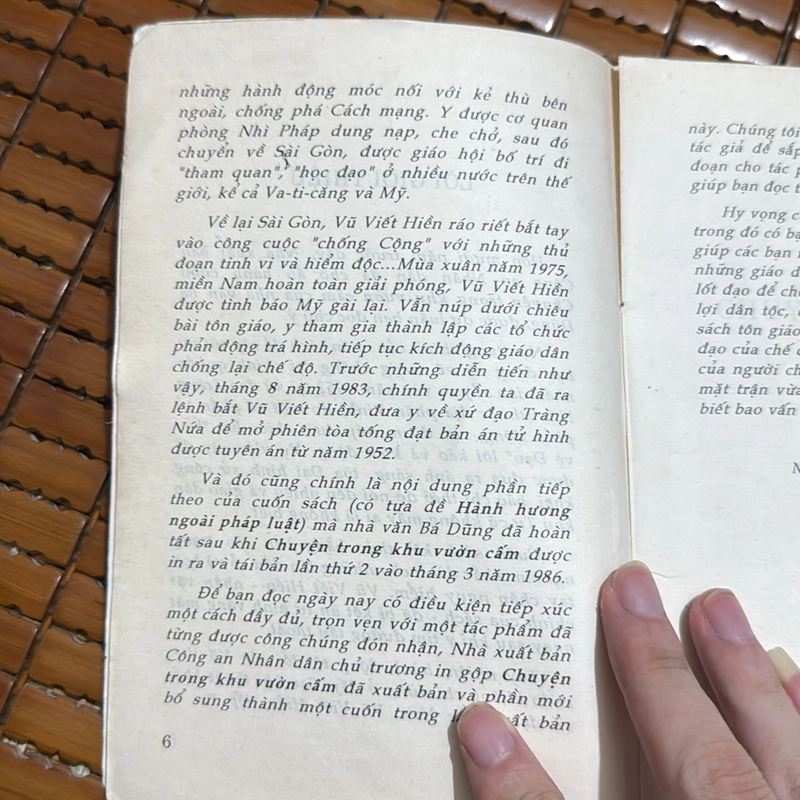 những hành động móc nối với kẻ thù bên
ngoài, chống phá Cách mạng. Y được cơ quan
phòng Nhì Pháp dung nạp, che chở, sau đó
chuyển về Sài Gòn, được giáo hội bố trí đi
"tham quan", "học đạo" ở nhiều nước trên thế
giới, kể cả Va-ti-căng và Mỹ.
Về lại Sài Gòn, Vũ Viết Hiền ráo riết bắt tay
vào công cuộc "chống Cộng" với những thủ
đoạn tinh vi và hiểm độc...Mùa xuân năm 1975,
miền Nam hoàn toàn giải phóng, Vũ Viết Hiền
được tình báo Mỹ gài lại. Vẫn núp dưới chiêu
bài tôn giáo, y tham gia thành lập các tổ chức
phản động trá hình, tiếp tục kích động giáo dân
chống lại chế độ. Trước những diễn tiến như
vậy, tháng 8 năm 1983, chính quyền ta đã ra
lệnh bắt Vũ Viết Hiền, đưa y về xứ đạo Tràng
Nứa để mở phiên tòa tống đạt bản án tử hình
được tuyên án từ năm 1952.
Và đó cũng chính là nội dung phần tiếp
theo của cuốn sách (có tựa đề Hành hương
ngoài pháp luật) mà nhà văn Bá Dũng đã hoàn
tất sau khi Chuyện trong khu vườn cấm được
in ra và tái bản lần thứ 2 vào tháng 3 năm 1986.
Để bạn đọc ngày nay có điều kiện tiếp xúc
một cách đầy đủ, trọn vẹn với một tác phẩm đã
từng được công chúng đón nhận, Nhà xuất bản
Công an Nhân dân chủ trương in gộp Chuyện
trong khu vườn cấm đã xuất bản và phần mới
bổ sung thành một cuốn trong bản
6
này. Chúng tôi
tác giả để sắp
đoạn cho tác
giúp bạn đọc
Hy vọng
trong đó có
giúp các bạn
những giáo
lốt đạo để
lợi dân tộc,
sách tôn giáo
đạo của chế
của người
mặt trận vừa
biết bao vấn